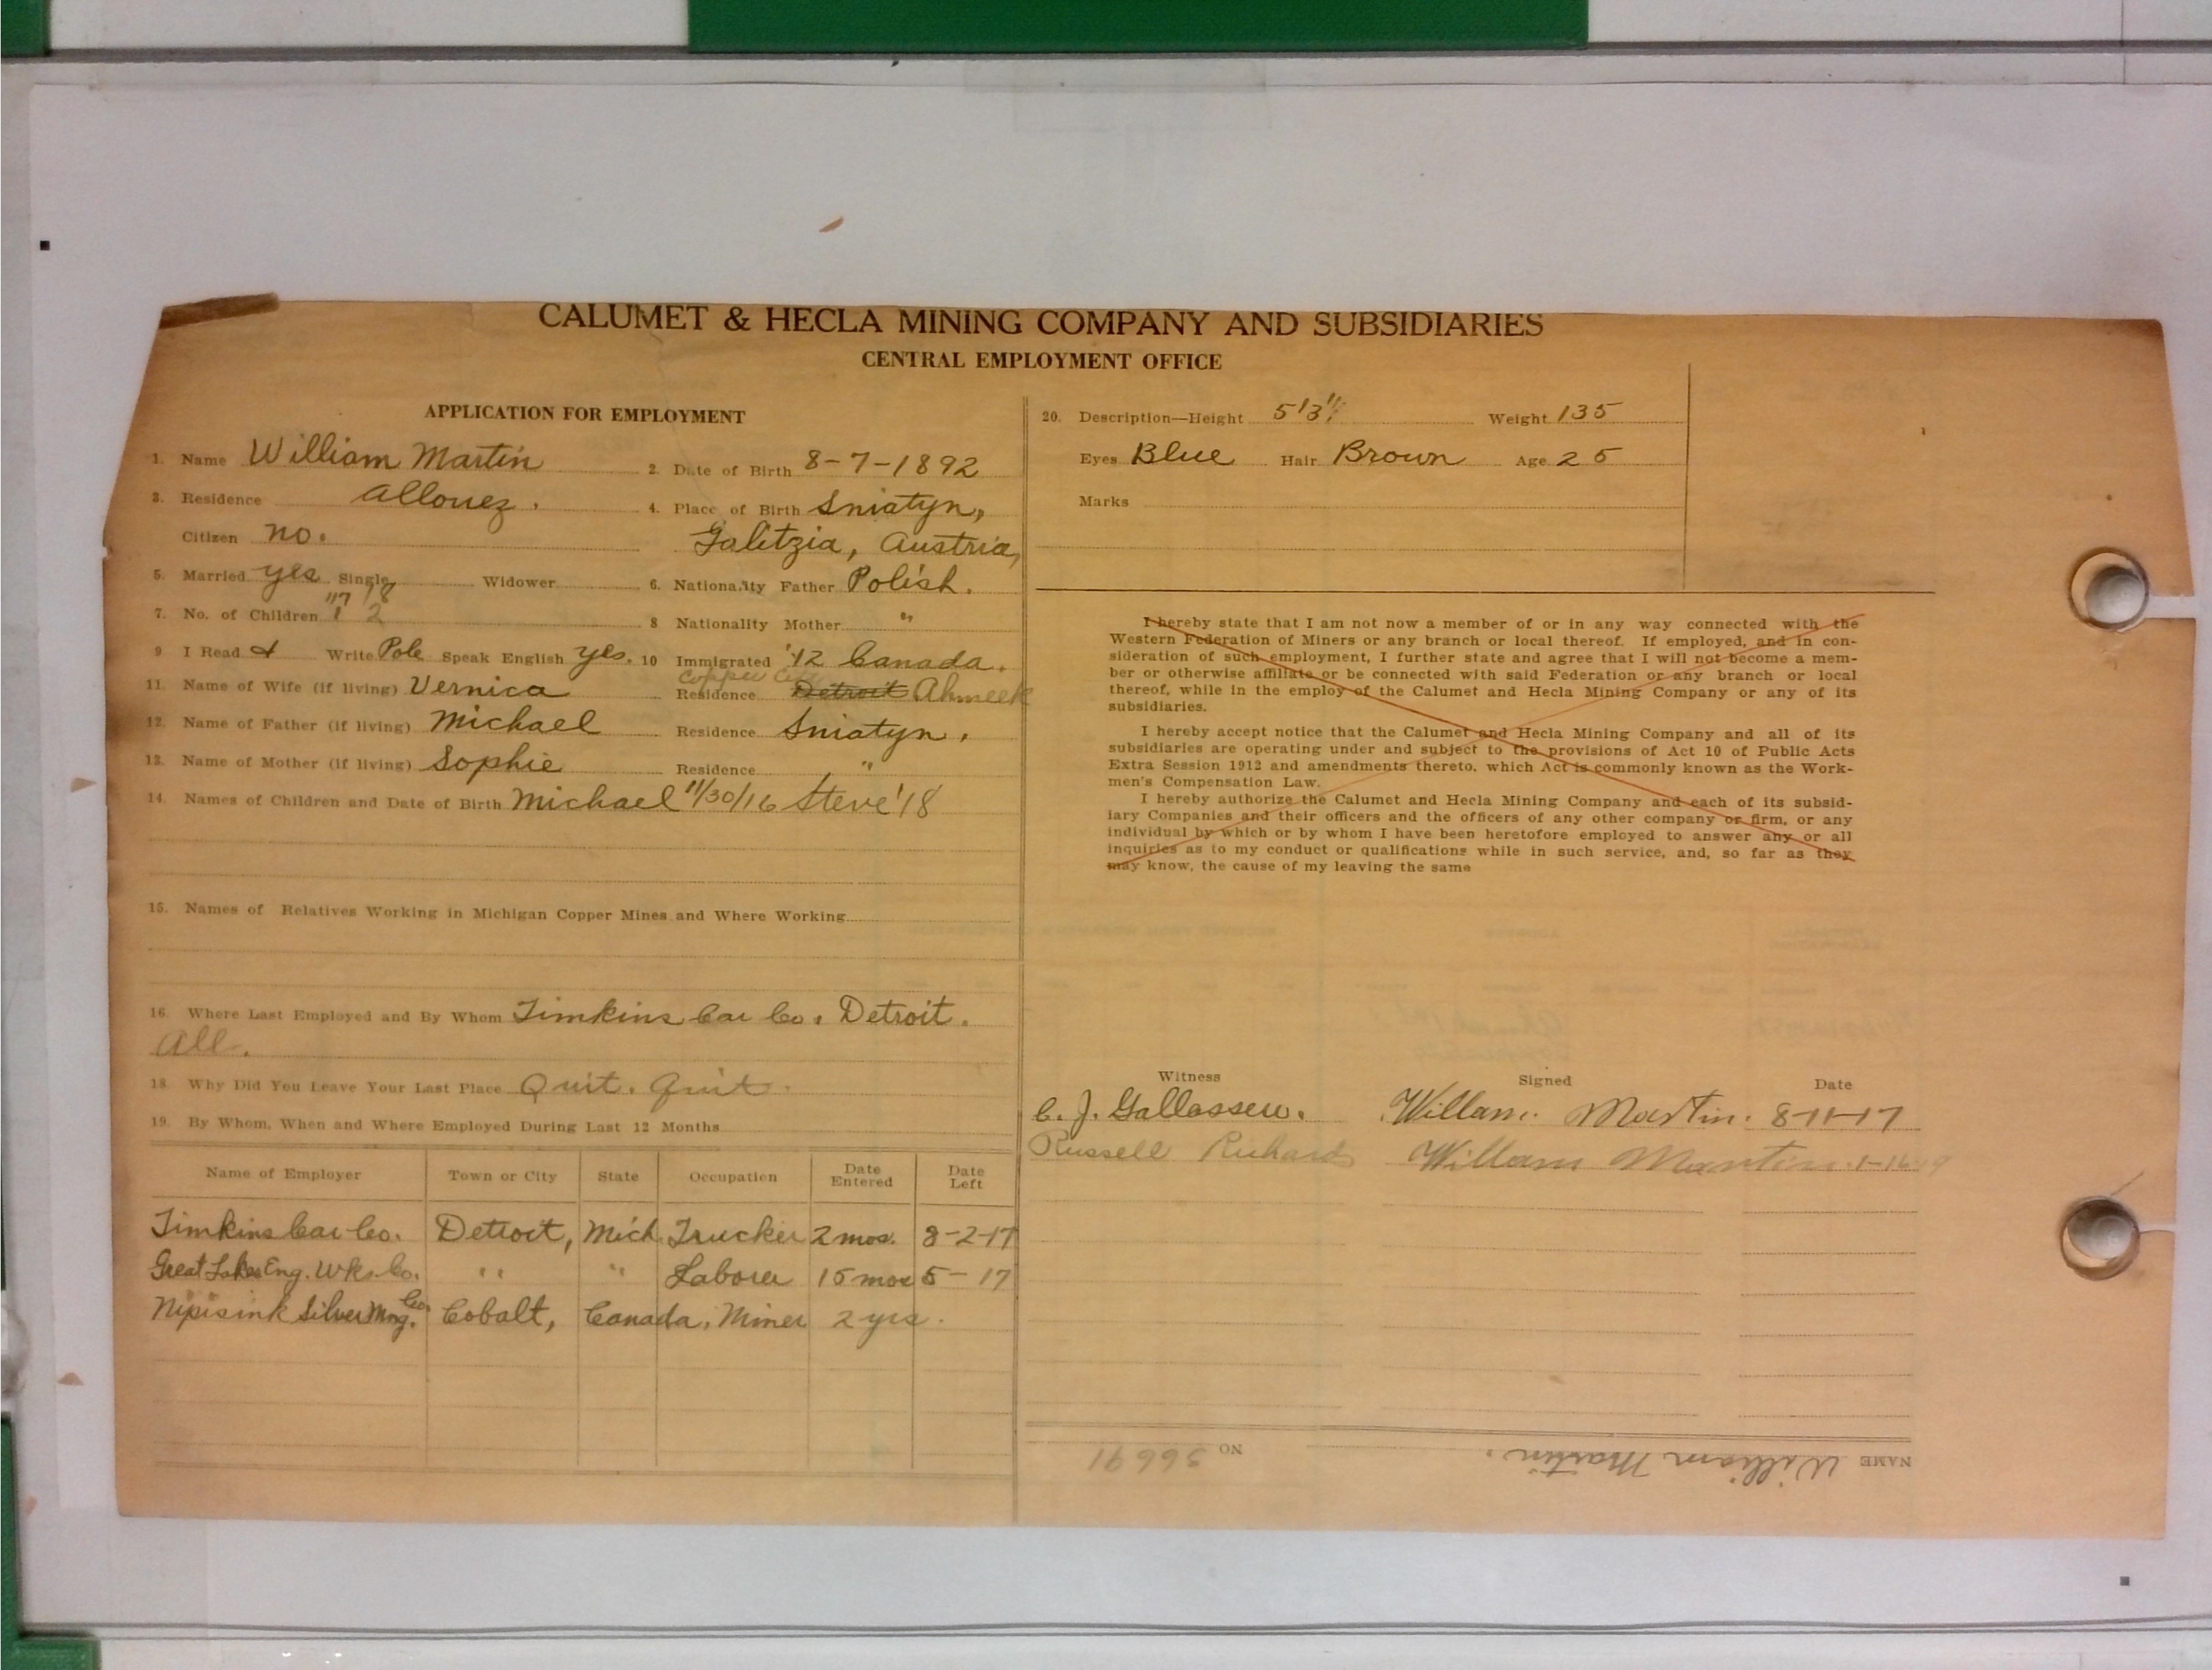 CALUMET & HECLA MINING COMPANY AND SUBSIDIARIES
CENTRAL EMPLOYMENT OFFICE
APPLICATION FOR EMPLOYMENT
1. Name William Martin 2. Date of Birth 8-7-1892
3. Residence Allouez. 4. Place of Birth Sniatyn,
Citizen no. Galitzia, Austria,
5. Married yes Single Widower 6. Nationality Father Polish.
"17 18
7. No. of Children 1 2 8 Nationality Mother "
9 I Read & Write Pole Speak English yes. 10 Immigrated '12 Canada.
Copper City
11. Name of Wife (if living) Vernica Residence Detroit Ahmeek
12. Name of Father (if living) Michael Residence Sniatyn.
13. Name of Mother (if living) Sophie Residence "
14. Names of Children and Date of Birth Michael 11/30/16 Steve '18
15. Names of Relatives Working in Michigan Copper Mines and Where Working
16. Where Last Employed and By Whom Timkins Car Co. Detroit.
All.
18. Why Did You Leave Your Last Place Quit. Quit.
19. By Whom, When and Where Employed During Last 12 Months
Name of Employer Town or City State Occupation Date Entered Date Left
Timkins Car Co. Detroit, Mich. Trucker 2 mos. 8-2-17
Great Lakes Eng. Wks. Co. " " Laborer 15 mos 5-17
Nipisink Silver Mng. Co. Cobalt, Canada, Miner 2 yrs.
20. Description—Height 5'3" Weight 135
Eyes Blue Hair Brown Age 25
Marks
I hereby state that I am not now a member of or in any way connected with the
Western Federation of Miners or any branch or local thereof. If employed, and in con-
sideration of such employment, I further state and agree that I will not become a mem-
ber or otherwise affiliate or be connected with said Federation or any branch or local
thereof, while in the employ of the Calumet and Hecla Mining Company or any of its
subsidiaries.
I hereby accept notice that the Calumet and Hecla Mining Company and all of its
subsidiaries are operating under and subject to the provisions of Act 10 of Public Acts
Extra Session 1912 and amendments thereto, which Act is commonly known as the Work-
men's Compensation Law.
I hereby authorize the Calumet and Hecla Mining Company and each of its subsid-
iary Companies and their officers and the officers of any other company or firm, or any
individual by which or by whom I have been heretofore employed to answer any or all
inquiries as to my conduct or qualifications while in such service, and, so far as they
may know, the cause of my leaving the same
Witness Signed Date
C. J. Gallassew. Willam. Martin. 8-11-17
Russell Richards Willam Martin 1-16-19
NAME William Martin. NO 36691